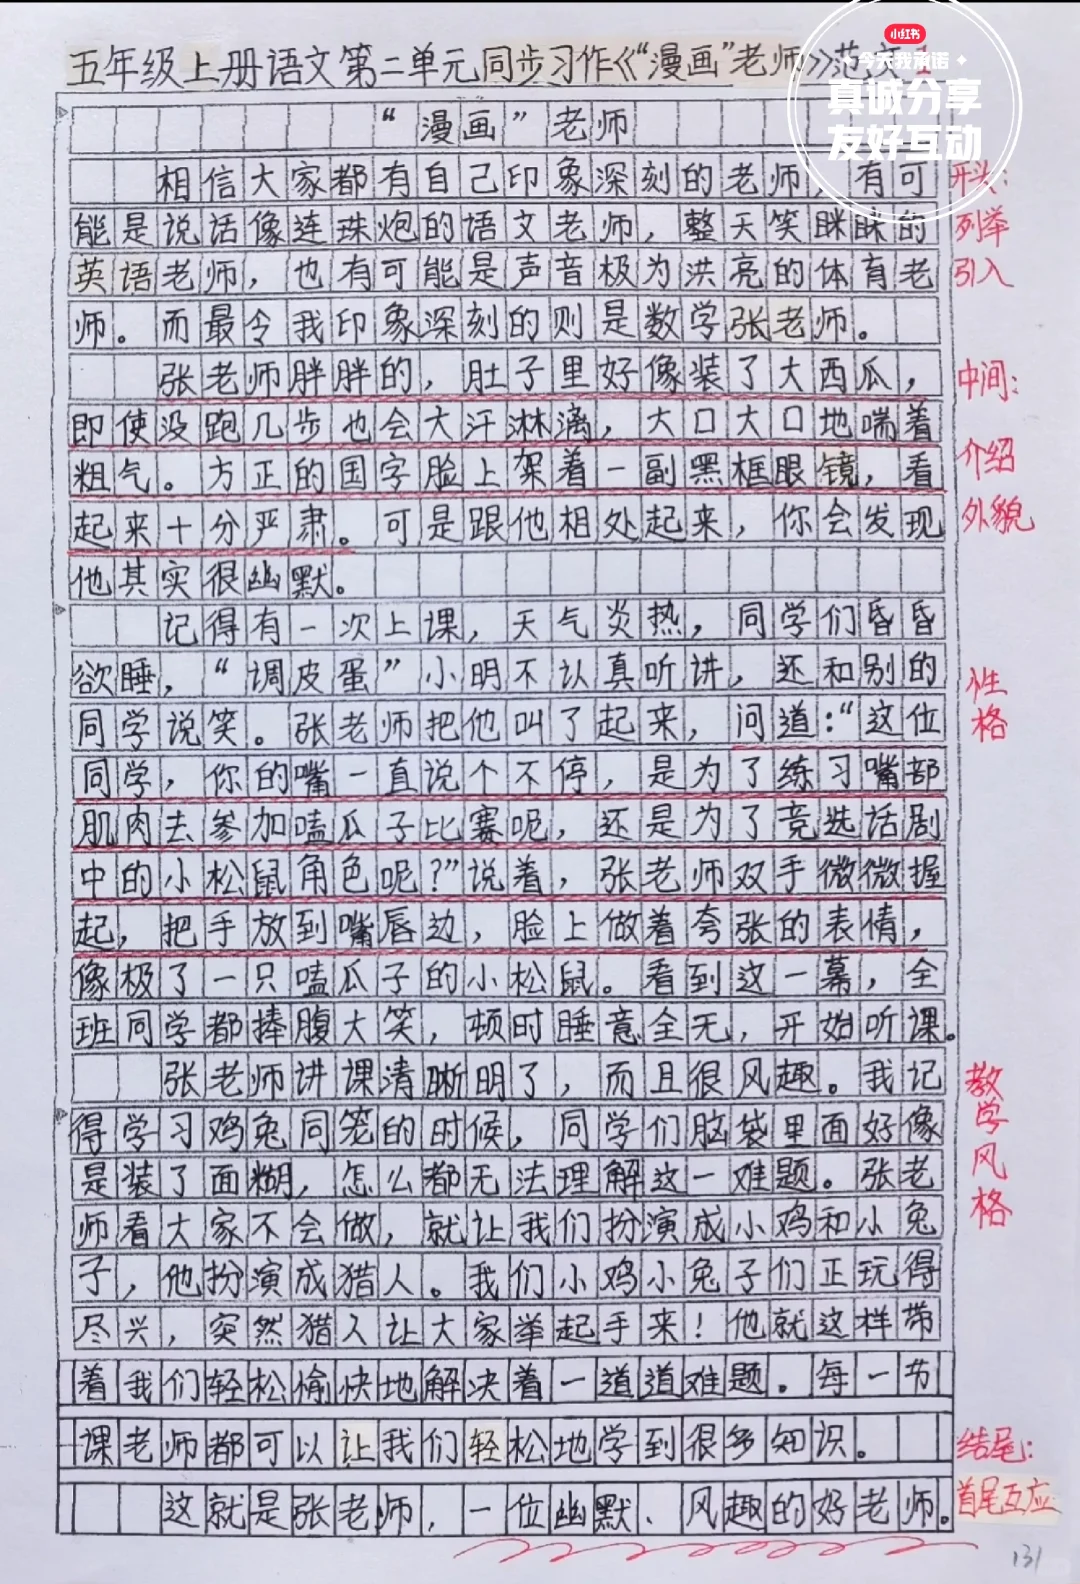 小红书
今天我承诺
真诚分享
友好互动
五年级上册语文第二单元同步习作《“漫画”老师》范文1
“漫画”老师
相信大家都有自己印象深刻的老师，有可
能是说话像连珠炮的语文老师，整天笑眯眯的
英语老师，也有可能是声音极为洪亮的体育老
师。而最令我印象深刻的则是数学张老师。
张老师胖胖的，肚子里好像装了大西瓜，
即使没跑几步也会大汗淋漓，大口大口地喘着
粗气。方正的国字脸上架着一副黑框眼镜，看
起来十分严肃。可是跟他相处起来，你会发现
他其实很幽默。
记得有一次上课，天气炎热，同学们昏昏
欲睡，“调皮蛋”小明不认真听讲，还和别的
同学说笑。张老师把他叫了起来，问道：“这位
同学，你的嘴一直说个不停，是为了练习嘴部
肌肉去参加嗑瓜子比赛呢，还是为了竞选话剧
中的小松鼠角色呢？”说着，张老师双手微微握
起，把手放到嘴唇边，脸上做着夸张的表情，
像极了一只嗑瓜子的小松鼠。看到这一幕，全
班同学都捧腹大笑，顿时睡意全无，开始听课。
张老师讲课清晰明了，而且很风趣。我记
得学习鸡兔同笼的时候，同学们脑袋里面好像
是装了面糊，怎么都无法理解这一难题。张老
师看大家不会做，就让我们扮演成小鸡和小兔
子，他扮演成猎人。我们小鸡小兔子们正玩得
尽兴，突然猎人让大家举起手来！他就这样带
着我们轻松愉快地解决着一道道难题。每一节
课老师都可以让我们轻松地学到很多知识。
这就是张老师，一位幽默、风趣的好老师。
开头：
列举
引入
中间：
介绍
外貌
性格
教学风格
结尾：
首尾互应
131